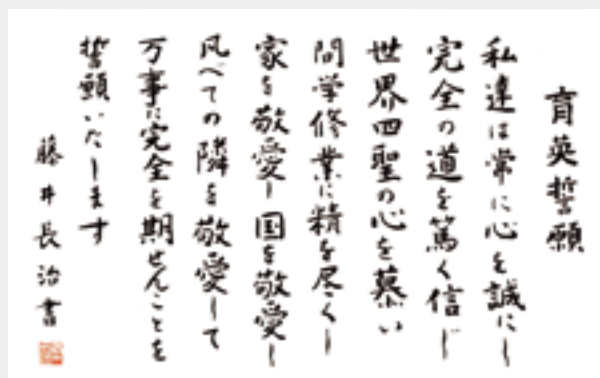 育英誓願
私達は常に心を誠にし
完全の道を篤く信じ
世界四聖の心を慕い
問学修業に精を尽くし
家を敬愛し国を敬愛し
凡べての隣を敬愛して
万事に完全を期せんことを
誓願いたします
藤井長治書